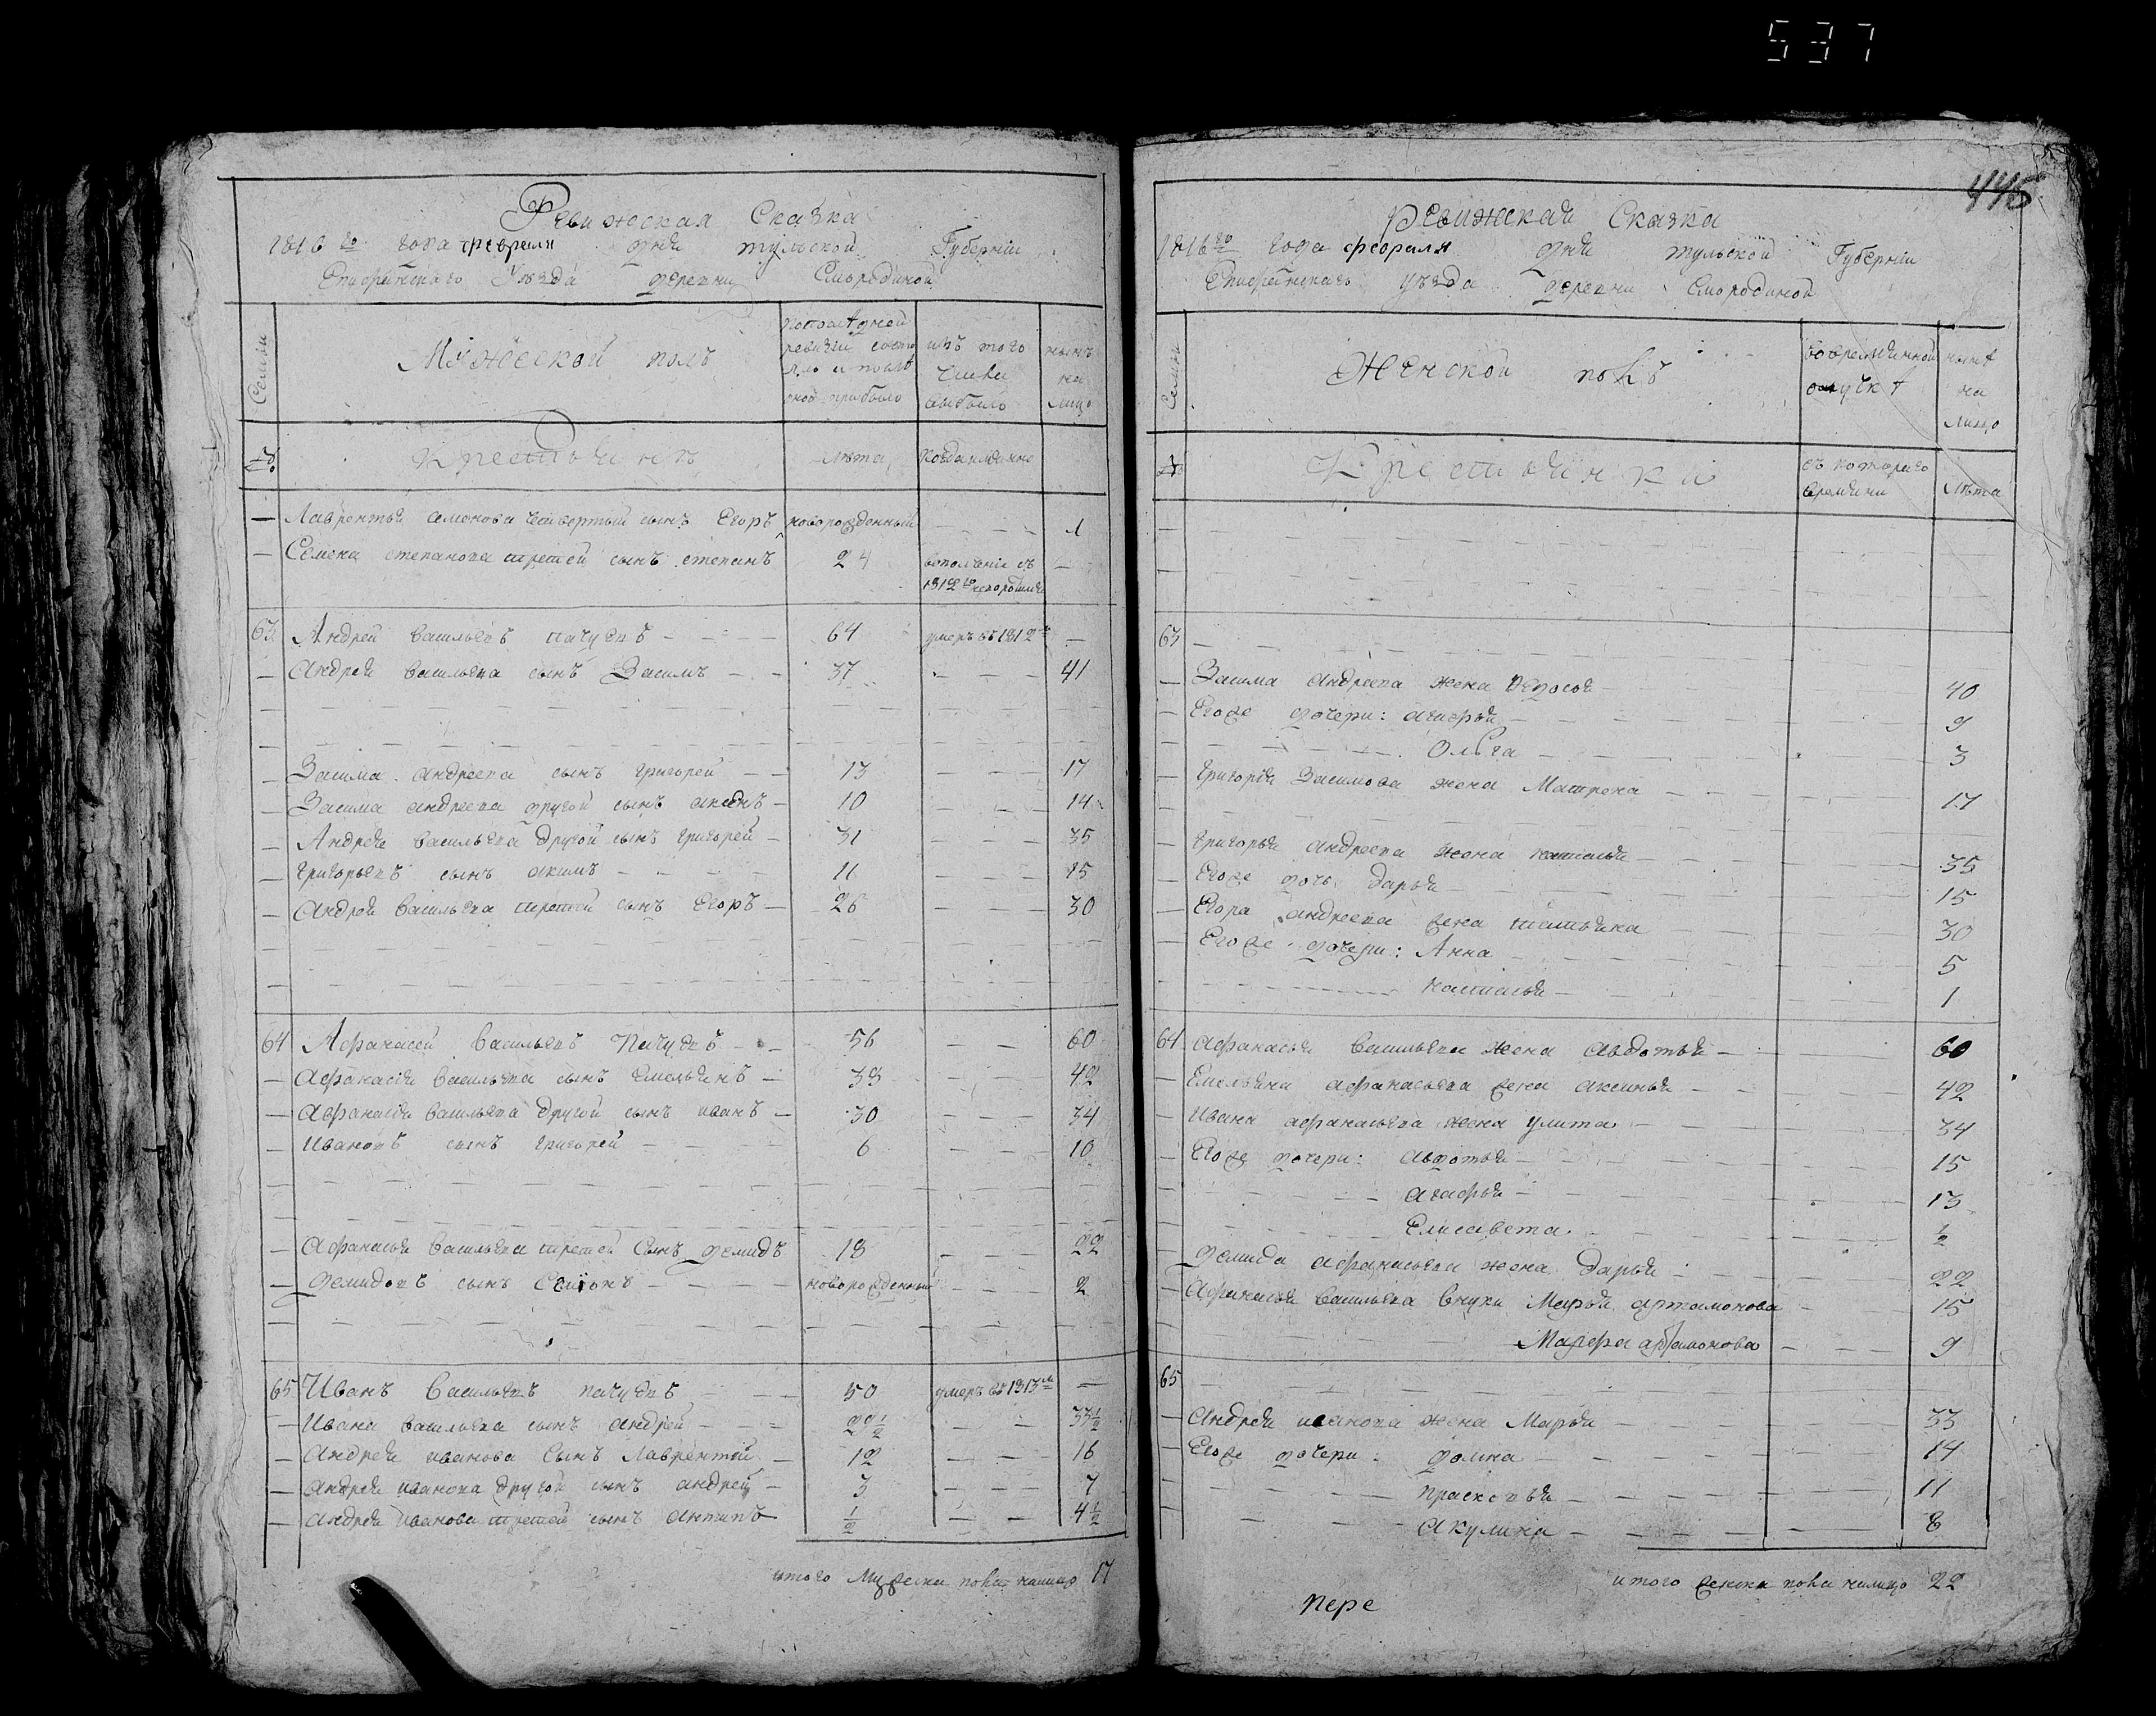 537
445
Ревижская Сказка
1816го года февраля дня тульской Губернiи
Епифанскаго Уѣзда деревни Смородиной
Семьи
Мужеской полъ
по последней
ревизiи состо
яло и после
оной прибыло
изъ того
числа
выбыло
нынѣ
на
лицо
№
Крестьянъ
лѣта
когда имянно
— Лаврентья семенова четвертый сынъ Егоръ новорожденный — — — 1
— Семена степанова третей сынъ степанъ 24 вополченiи съ —
1812го
63 Андрей васильевъ пачуевъ — — — 64 умеръ въ 1812м —
— Андрея васильева сынъ Засимъ — — 37 — — — 41
— Засима андреева сынъ григорей — — 13 — — — 17
— Засима андреева другой сынъ — 10 — — — 14
— Андрея васильева другой сынъ григорей — 31 — — — 35
— григорьевъ сынъ акимъ — — — — 11 — — — 15
— Андрея васильева третей сынъ Егоръ — 26 — — — 30
64 Афанасей васильевъ Пачуевъ — — 56 — — — 60
— Афанасья васильева сынъ Емельянъ — 38 — — — 42
— Афанасья васильева другой сынъ иванъ — 30 — — — 34
— Ивановъ сынъ григорей — — — 6 — — — 10
— Афанасья васильева третей сынъ демидъ 18 — — — 22
— демидовъ сынъ Семионъ — — — новорожденный — — — 2
65 Иванъ васильевъ пачуевъ — — — 50 умеръ въ 1813м —
— Ивана васильева сынъ андрей — — — 29 1/2 — — — 33 1/2
— Андрея иванова сынъ Лаврентей — 12 — — — 16
— андрея иванова другой сынъ андрей — 3 — — — 7
— андрея иванова третей сынъ антипъ 1/2 — — — 4 1/2
итого мужеска пола налицо 17
Ревижская Сказка
1816го года февраля дня тульской Губернiи
Епифанскаго уѣзда деревни Смородиной
Семьи
Женской полъ
вовременной
отлучкѣ
нынѣ
на
лицо
№
Крестьянки
съ котораго
времяни
лѣта
63
— Засима андреева жена Федосья — — 40
— Егоже дочери: агафья — — 9
Ольга — — 3
— григорья Засимова жена Матрена — — 17
— григорья андреева жена наталья — — 35
— Егоже дочь дарья — — 15
— Егора андреева жена татьяна — — 30
— Егоже дочери: Анна — — 5
наталья — — 1
64 афанасья васильева жена авдотья — 60
— Емельяна афанасьева жена аксинья — — 42
— Ивана афанасьева жена улита — — 34
— Егоже дочери: авдотья — — 15
агафья — — 13
Елисавета — — 1/2
— демида афанасьева жена дарья — — 22
— Афанасья васильева внуки Марья артамонова — 15
Марфа артамонова — 9
65
— Андрея иванова жена Марья — — 33
— Егоже дочери: домна — — 14
прасковья — — 11
акулина — — 8
итого женска пола налицо 22
пере